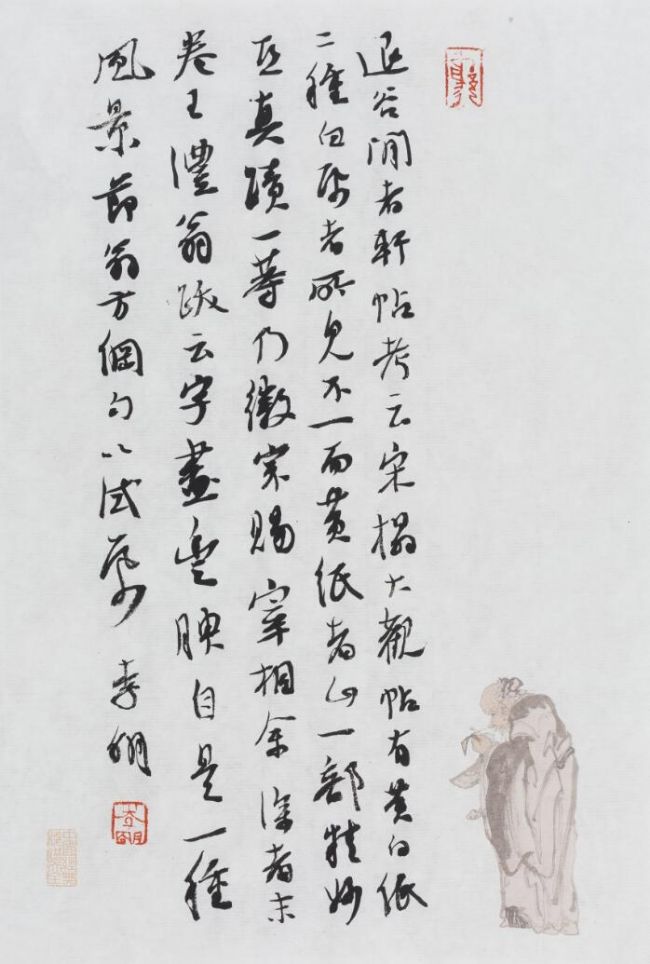 退谷閒者軒帖考云宋搨大觀帖有黄白紙
二種白帋者所見不一而黄紙者止一部精妙
亞真蹟一等乃徽宗賜宰相余深者末
卷王澧翁跋云字畫豐腴自是一種
風景節翁方綱句以試 李